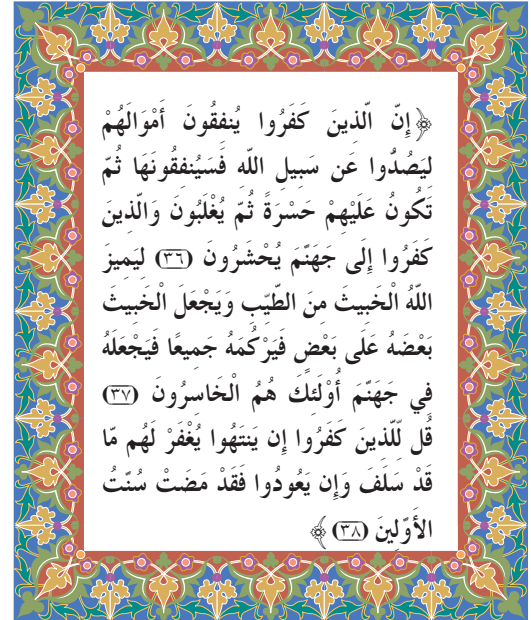 ﴿إِنَّ الَّذِينَ كَفَرُوا يُنفِقُونَ أَمْوَالَهُمْ
لِيَصُدُّوا عَن سَبِيلِ اللّهِ فَسَيُنفِقُونَهَا ثُمَّ
تَكُونُ عَلَيْهِمْ حَسْرَةً ثُمَّ يُغْلَبُونَ وَالَّذِينَ
كَفَرُوا إِلَى جَهَنَّمَ يُحْشَرُونَ (٣٦) لِيَمِيزَ
اللّهُ الْخَبِيثَ مِنَ الطَّيِّبِ وَيَجْعَلَ الْخَبِيثَ
بَعْضَهُ عَلَى بَعْضٍ فَيَرْكُمَهُ جَمِيعًا فَيَجْعَلَهُ
فِي جَهَنَّمَ أُوْلَئِكَ هُمُ الْخَاسِرُونَ (٣٧)
قُل لِّلَّذِينَ كَفَرُوا إِن يَنتَهُوا يُغْفَرْ لَهُم مَّا
قَدْ سَلَفَ وَإِن يَعُودُوا فَقَدْ مَضَتْ سُنَّتُ
الأَوَّلِينَ (٣٨) ﴾